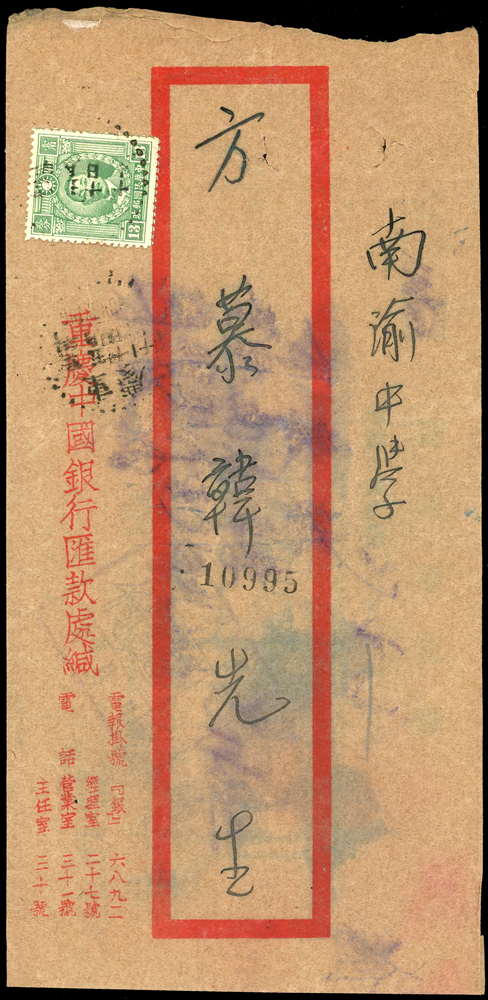 南渝中學
方慕韓先生
10995
重慶中國銀行匯款處緘
電報掛號『銀』六八九二
經理室 二十七號
電話 營業室 三十一號
主任室 三十號
13